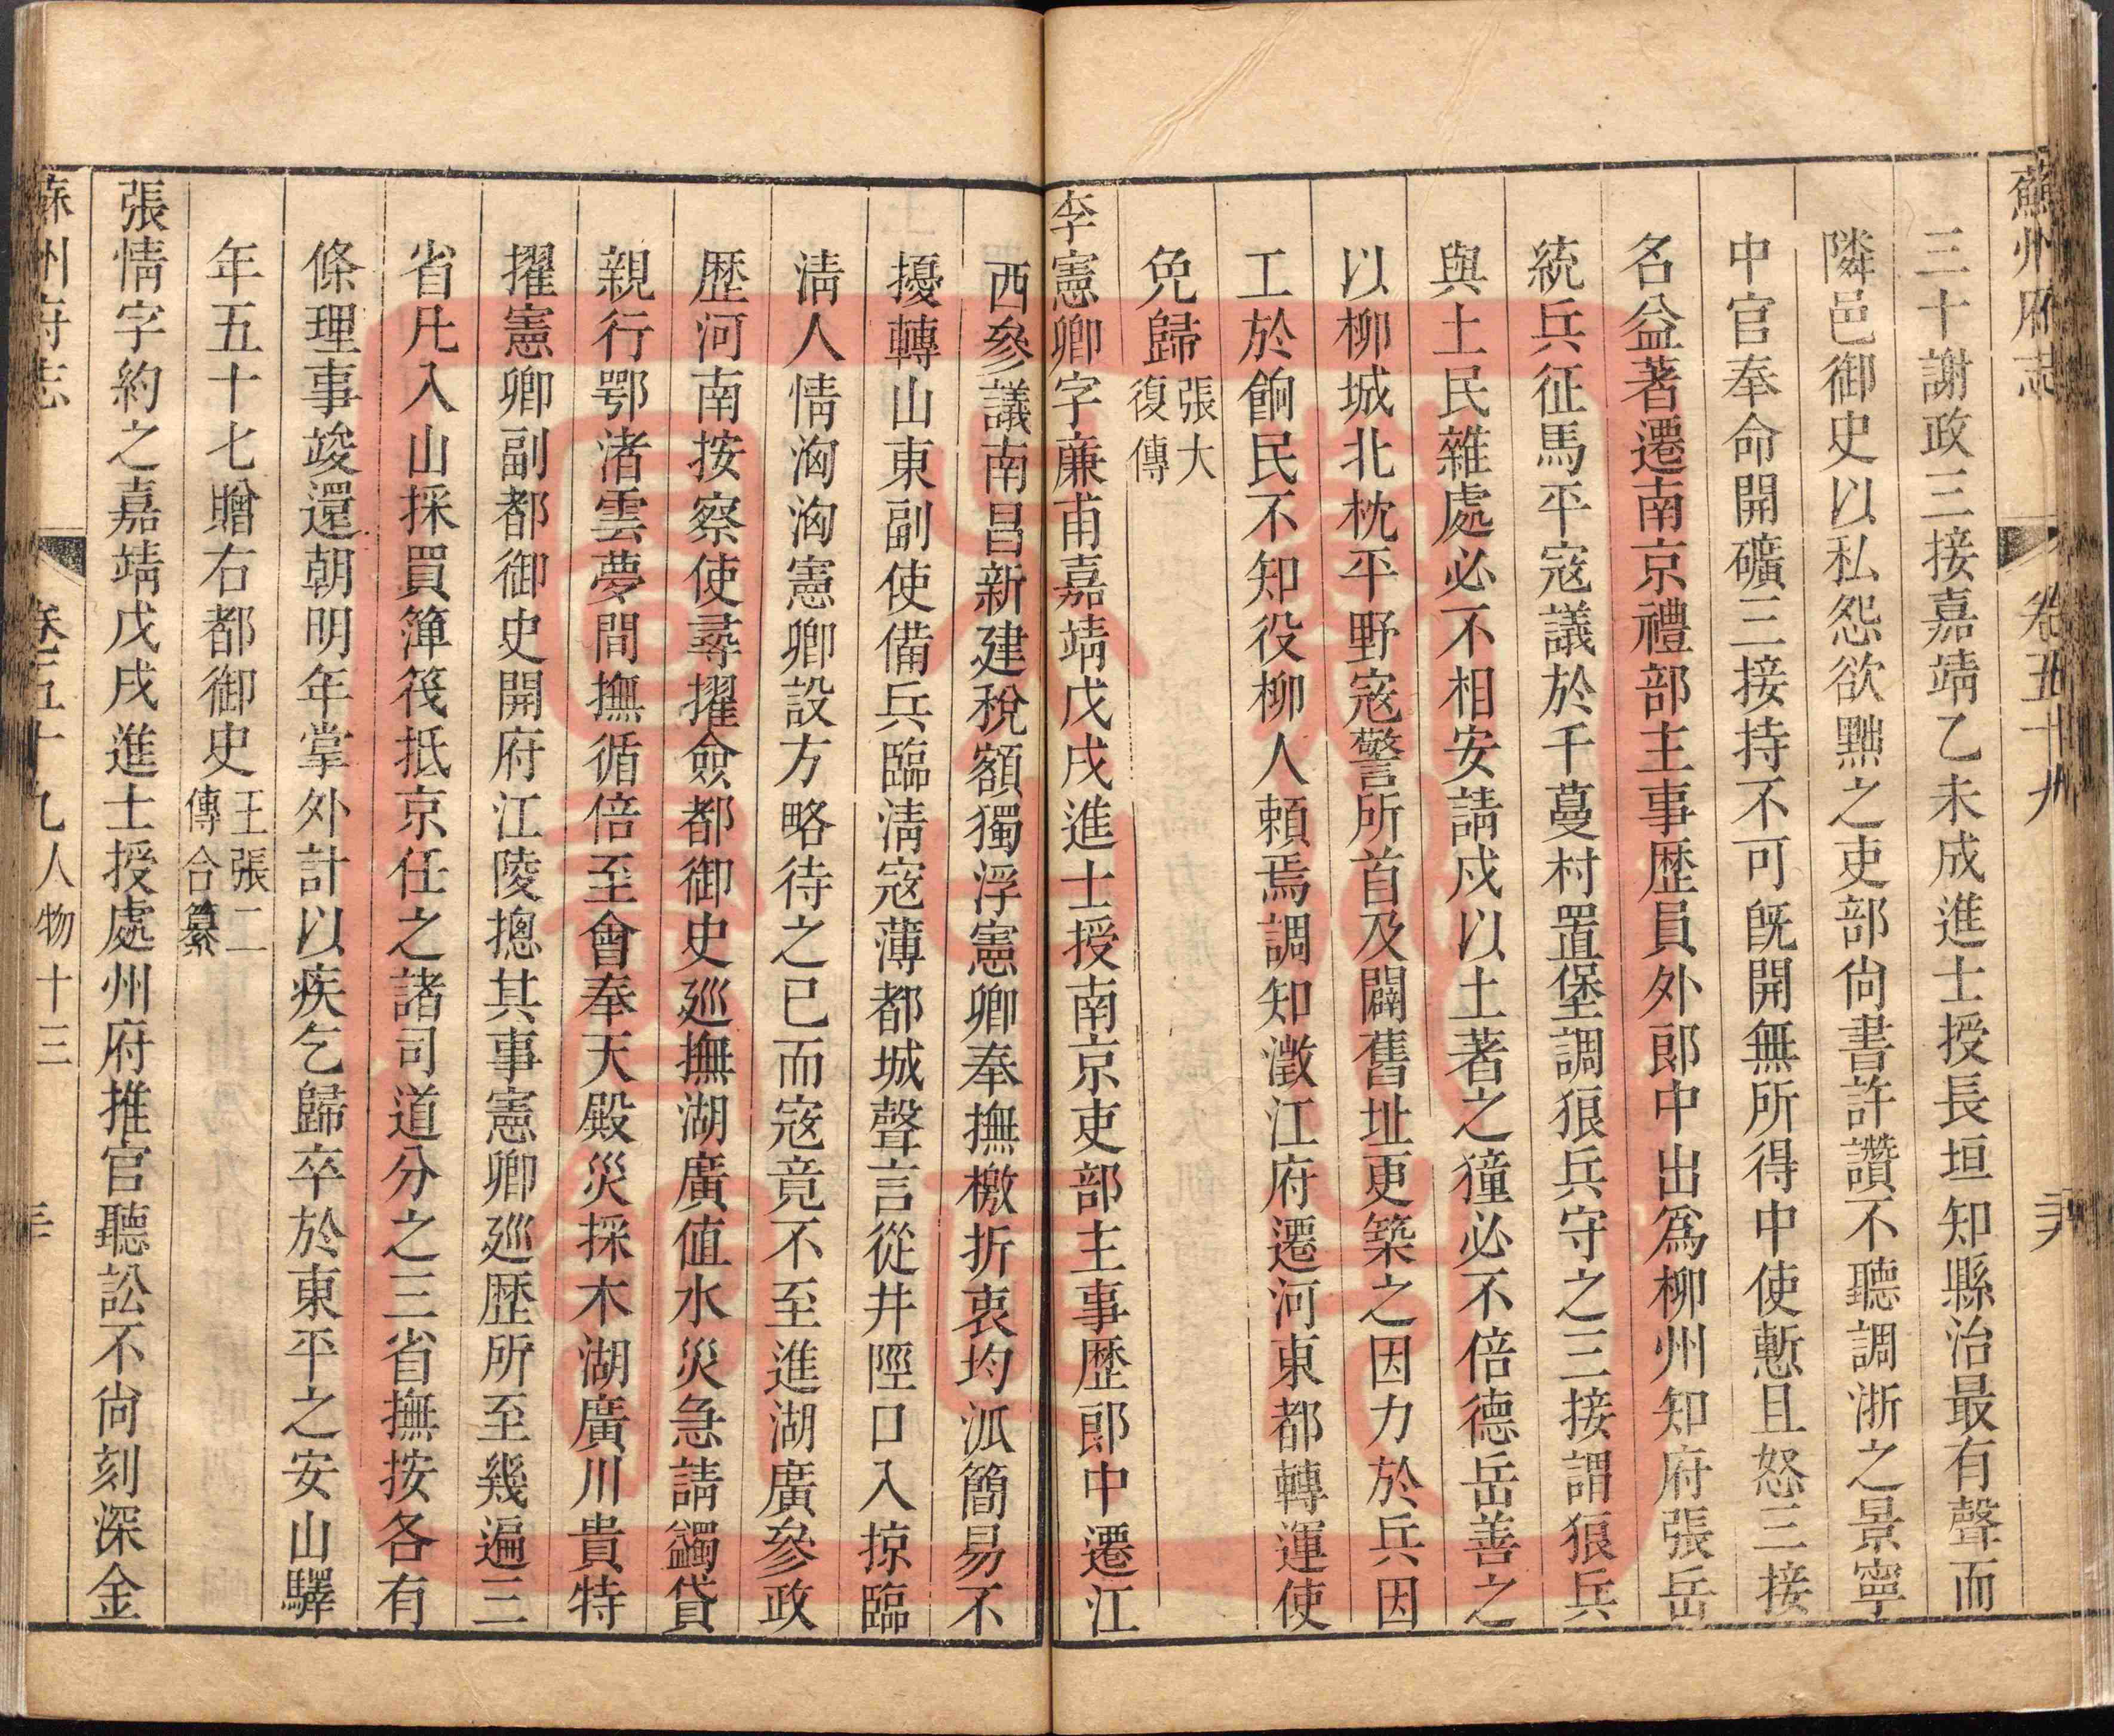 蘇州府志 卷五十九
三十謝政三接嘉靖乙未成進士授長垣知縣治最有聲而
隣邑御史以私怨欲黜之吏部尚書許讚不聽調浙之景寧
中官奉命開礦三接持不可旣開無所得中使慙且怒三接
名益著遷南京禮部主事歷員外郎中出爲柳州知府張岳
統兵征馬平寇議於千蔓村置堡調狼兵守之三接謂狼兵
與土民雜處必不相安請戍以土著之獞必不倍德岳善之
以柳城北枕平野寇警所首及闢舊址更築之因力於兵因
工於餉民不知役柳人頼焉調知澂江府遷河東都轉運使
免歸張大
復傳
李憲卿字亷甫嘉靖戊戌進士授南京吏部主事歷郎中遷江
西參議南昌新建稅額獨浮憲卿奉撫檄折衷均派簡易不
擾轉山東副使備兵臨淸寇薄都城聲言從井陘口入掠臨
淸人情洶洶憲卿設方略待之已而寇竟不至進湖廣參政
歷河南按察使尋擢僉都御史巡撫湖廣值水災急請蠲貸
親行鄂渚雲夢間撫循倍至會奉天殿災採木湖廣川貴特
擢憲卿副都御史開府江陵摠其事憲卿巡歷所至幾遍三
省凡入山採買簰筏抵京任之諸司道分之三省撫按各有
條理事竣還朝明年掌外計以疾乞歸卒於東平之安山驛
年五十七贈右都御史王張二
傳合纂
張情字約之嘉靖戊戌進士授處州府推官聽訟不尚刻深金
蘇州府志 卷五十九人物十三